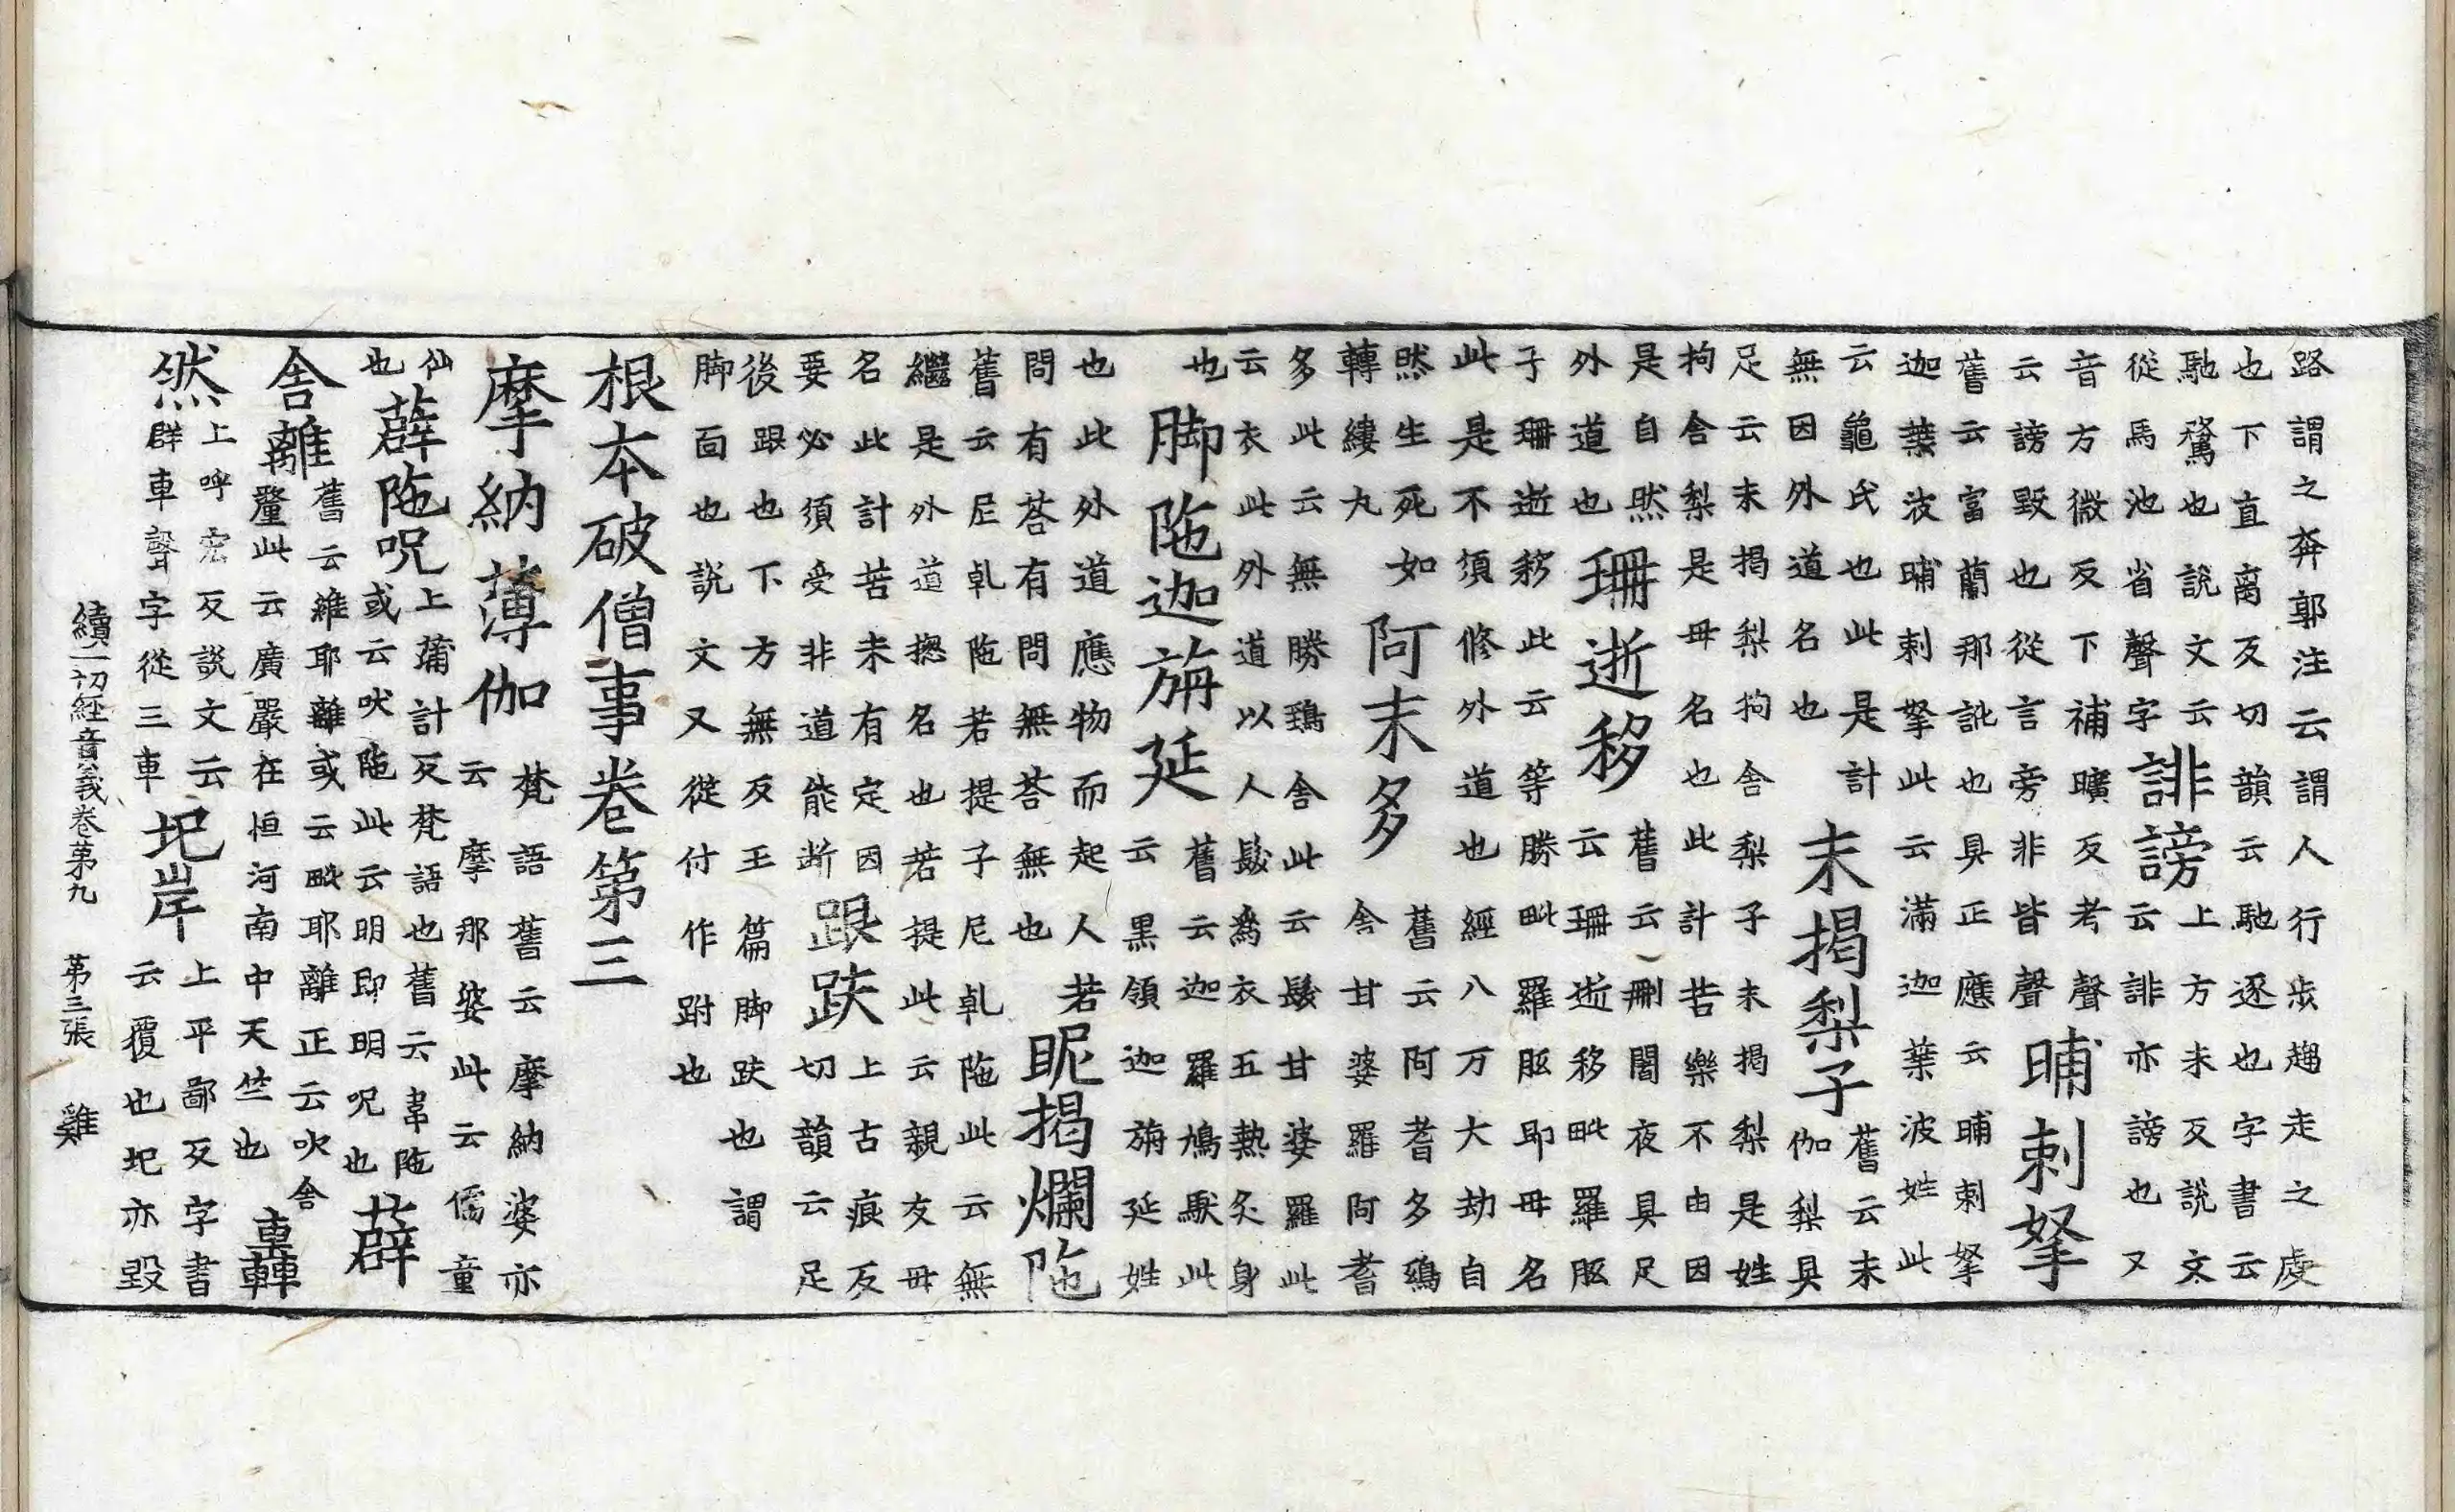 路謂之奔郭注云謂人行步趨走之處
也下直离反切韻云馳逐也字書云
馳騖也說文云
從馬池省聲字
誹謗
上方未反說文
云誹亦謗也又
音方微反下補曠反考聲
云謗毀也從言旁非皆聲
晡剌拏
舊云富蘭那訛也具正應云晡剌拏
迦葉波晡剌拏此云滿迦葉波姓此
云龜氏也此是計
無因外道名也
末揭梨子
舊云末
伽梨具
足云末揭梨拘舍梨子末揭梨是姓
拘舍梨是母名也此計苦樂不由因
是自然
外道也
珊逝移
舊云刪闍夜具足
云珊逝移毗羅胝
子珊逝移此云等勝毗羅胝即母名
此是不須修外道也經八万大劫自
然生死如
轉縷丸
阿末多
舊云阿耆多鵄
舍甘婆羅阿耆
多此云無勝鵄舍此云髮甘婆羅此
云衣此外道以人髮爲衣五熱炙身
也
脚陁迦旃延
舊云迦羅鳩馱此
云黑領迦旃延姓
也此外道應物而起人若
問有荅有問無荅無也
昵揭爛陁
舊云尼乹陁若提子尼乹陁此云無
繼是外道摠名也若提此云親友母
名此計苦未有定因
要必須受非道能断
跟趺
上古痕反
切韻云足
後跟也下方無反玉篇脚趺也謂
脚面也說文又從付作跗也
根本破僧事卷第三
摩納薄伽
梵語舊云摩納婆亦
云摩那婆此云儒童
仙
也
薜陁呪
上蒲計反梵語也舊云韋陁
或云吠陁此云明即明呪也
薜
舍離
舊云維耶離或云毗耶離正云吠舍
釐此云廣嚴在恒河南中天竺也
轟
然
上呼宏反說文云
群車聲字從三車
圮岸
上平鄙反字書
云覆也圮亦毀
續一切經音義卷第九 第三張 雞